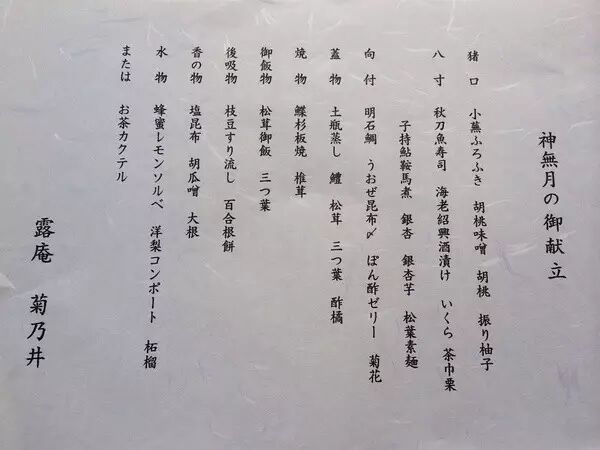 神無月の御献立
猪口 小蕪ふろふき 胡桃味噌 胡桃 振り柚子
八寸 秋刀魚寿司 海老紹興酒漬け いくら 茶巾栗
子持鮎鞍馬煮 銀杏 銀杏芋 松葉素麺
向付 明石鯛 うおぜ昆布〆 ぽん酢ゼリー 菊花
蓋物 土瓶蒸し 鱧 松茸 三つ葉 酢橘
焼物 鰈杉板焼 椎茸
御飯物 松茸御飯 三つ葉
後吸物 枝豆すり流し 百合根餅
香の物 塩昆布 胡瓜噌 大根
水物 蜂蜜レモンソルベ 洋梨コンポート 柘榴
または お茶カクテル
露庵 菊乃井